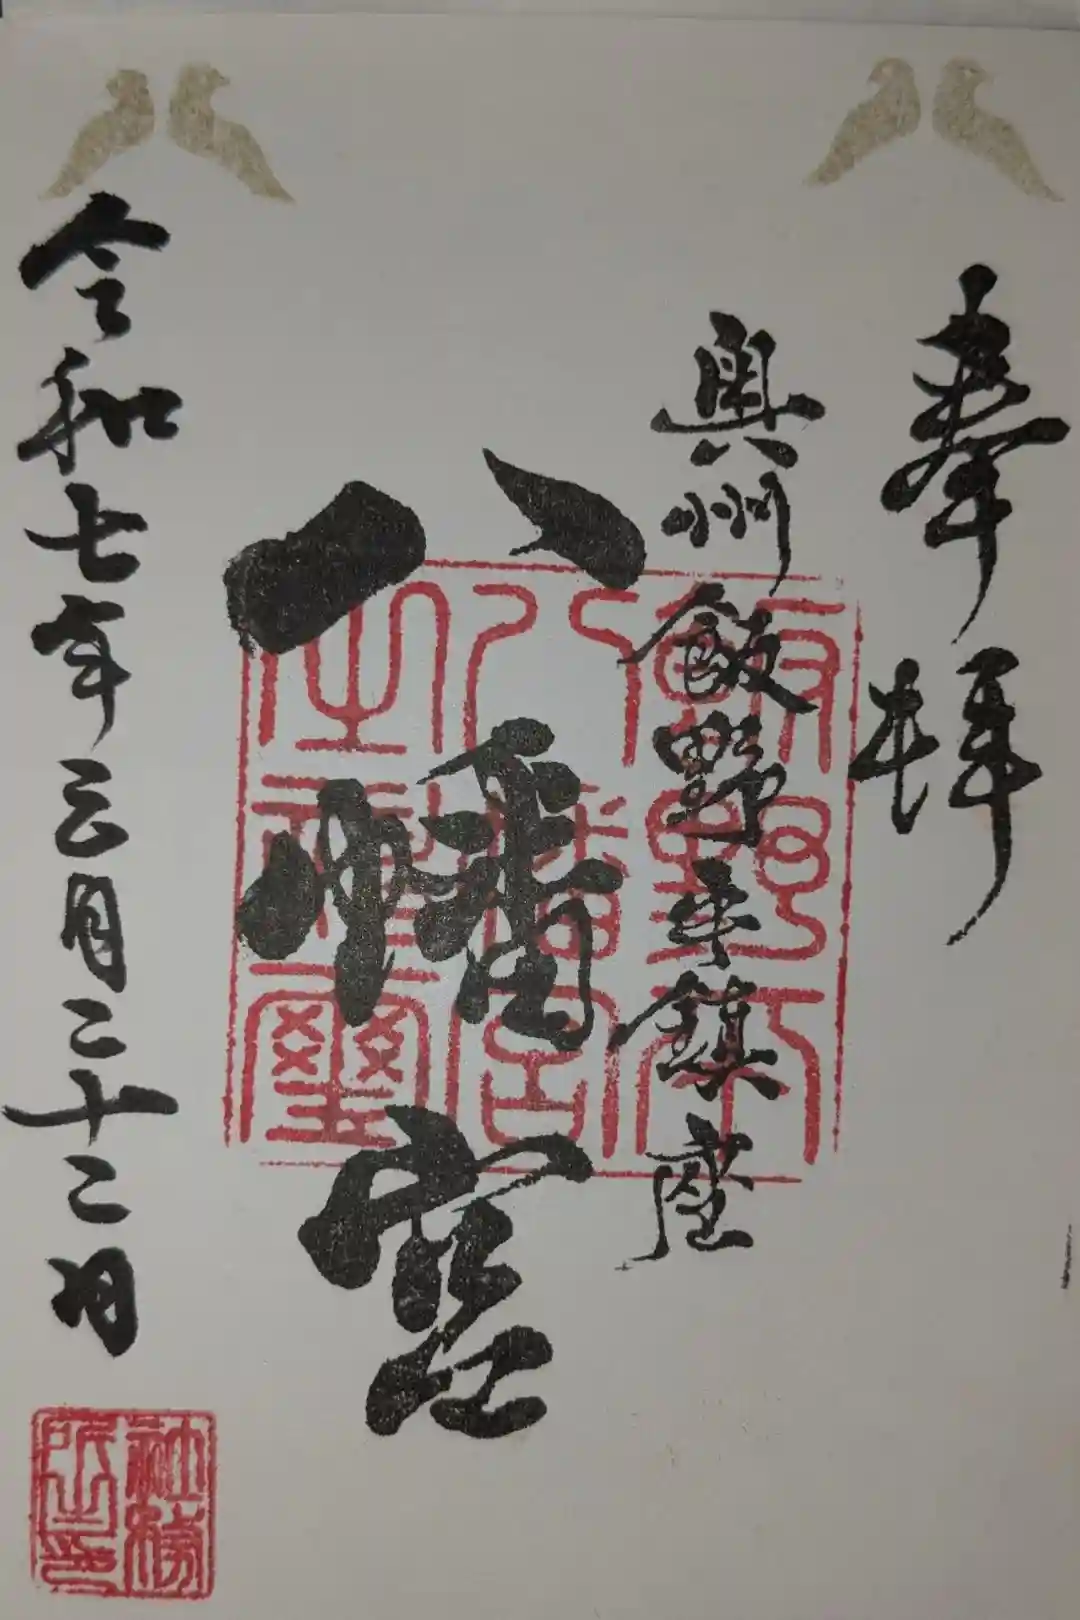 奉拝
奥州飯野平鎮座
八幡宮
令和七年三月二十二日
飯野平
八幡宮
之神璽
社務
所之印